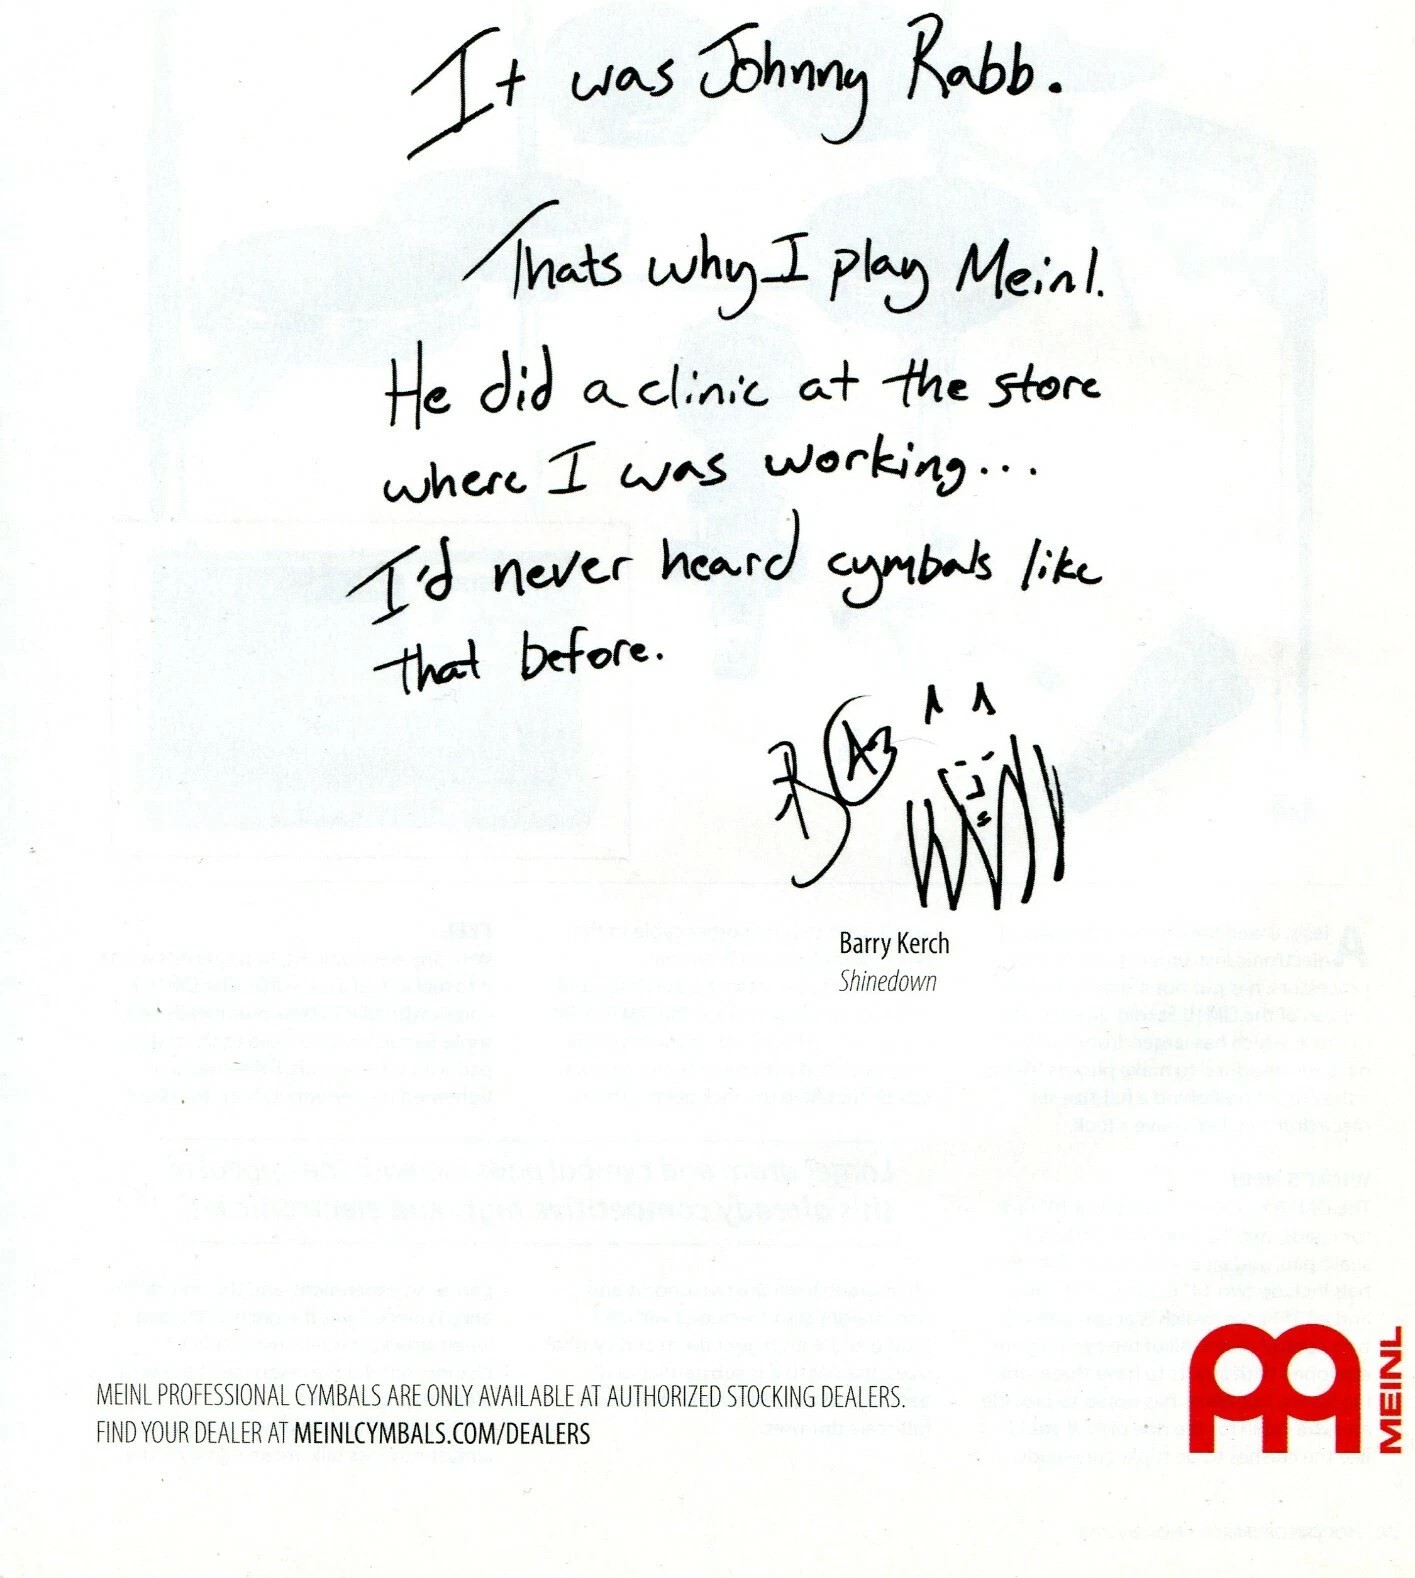 It was Johnny Rabb.
Thats why I play Meinl.
He did a clinic at the store
where I was working...
I'd never heard cymbals like
that before.
Barry Kerch
Shinedown
MEINL PROFESSIONAL CYMBALS ARE ONLY AVAILABLE AT AUTHORIZED STOCKING DEALERS.
FIND YOUR DEALER AT MEINLCYMBALS.COM/DEALERS
MEINL